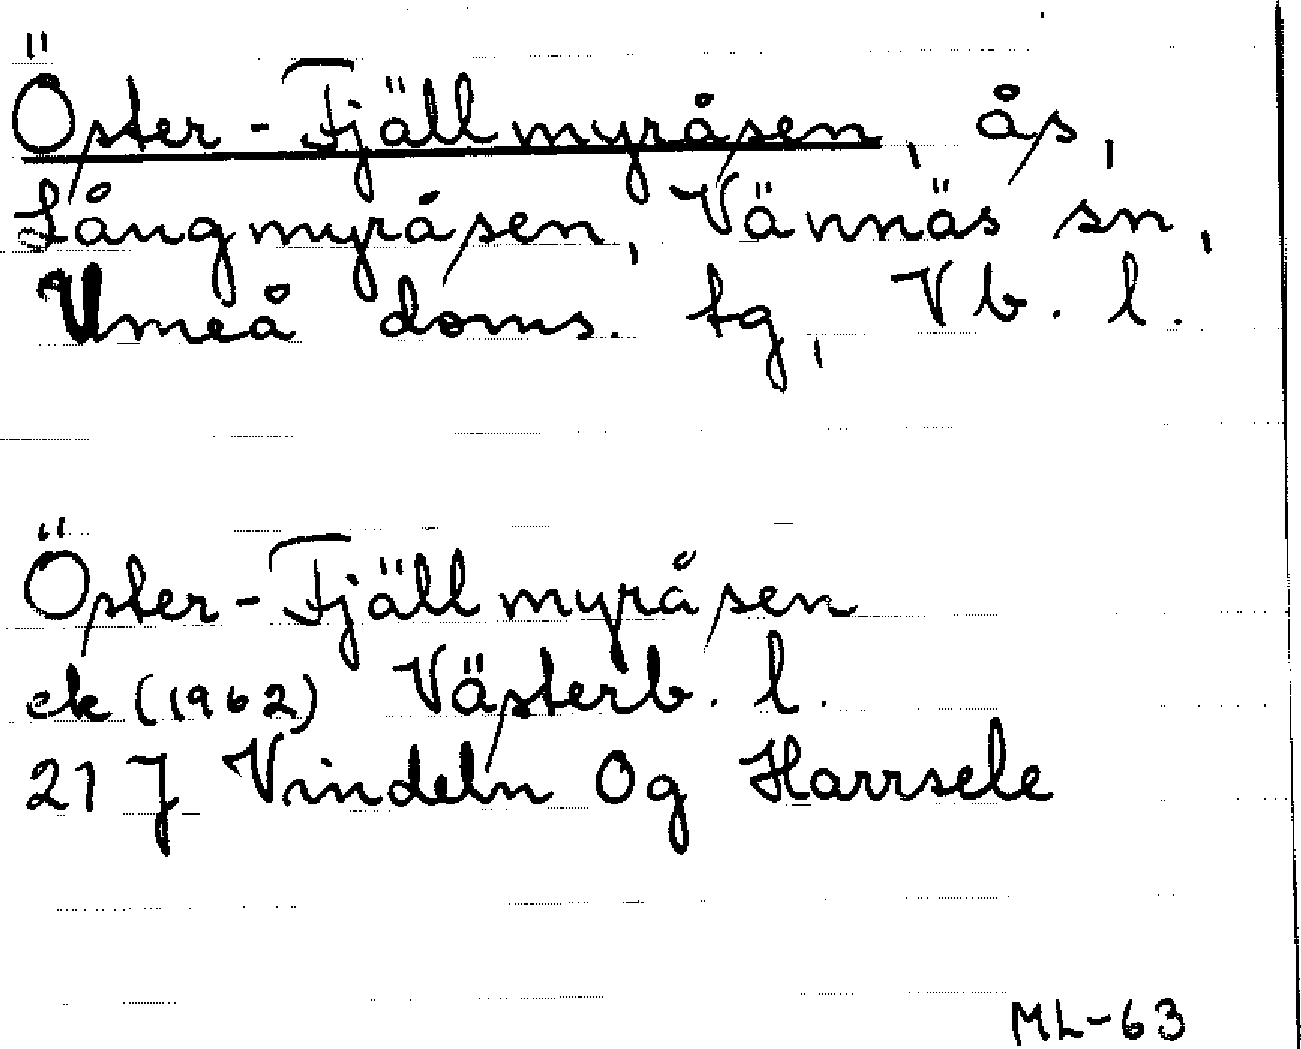 Öster-Fjällmyråsen, ås,
Långmyråsen, Vännäs sn,
Umeå doms. tg, Vb. l.
Öster-Fjällmyråsen
ek (1962) Västerb. l.
21 J Vindeln 0g Harrsele
ML-63